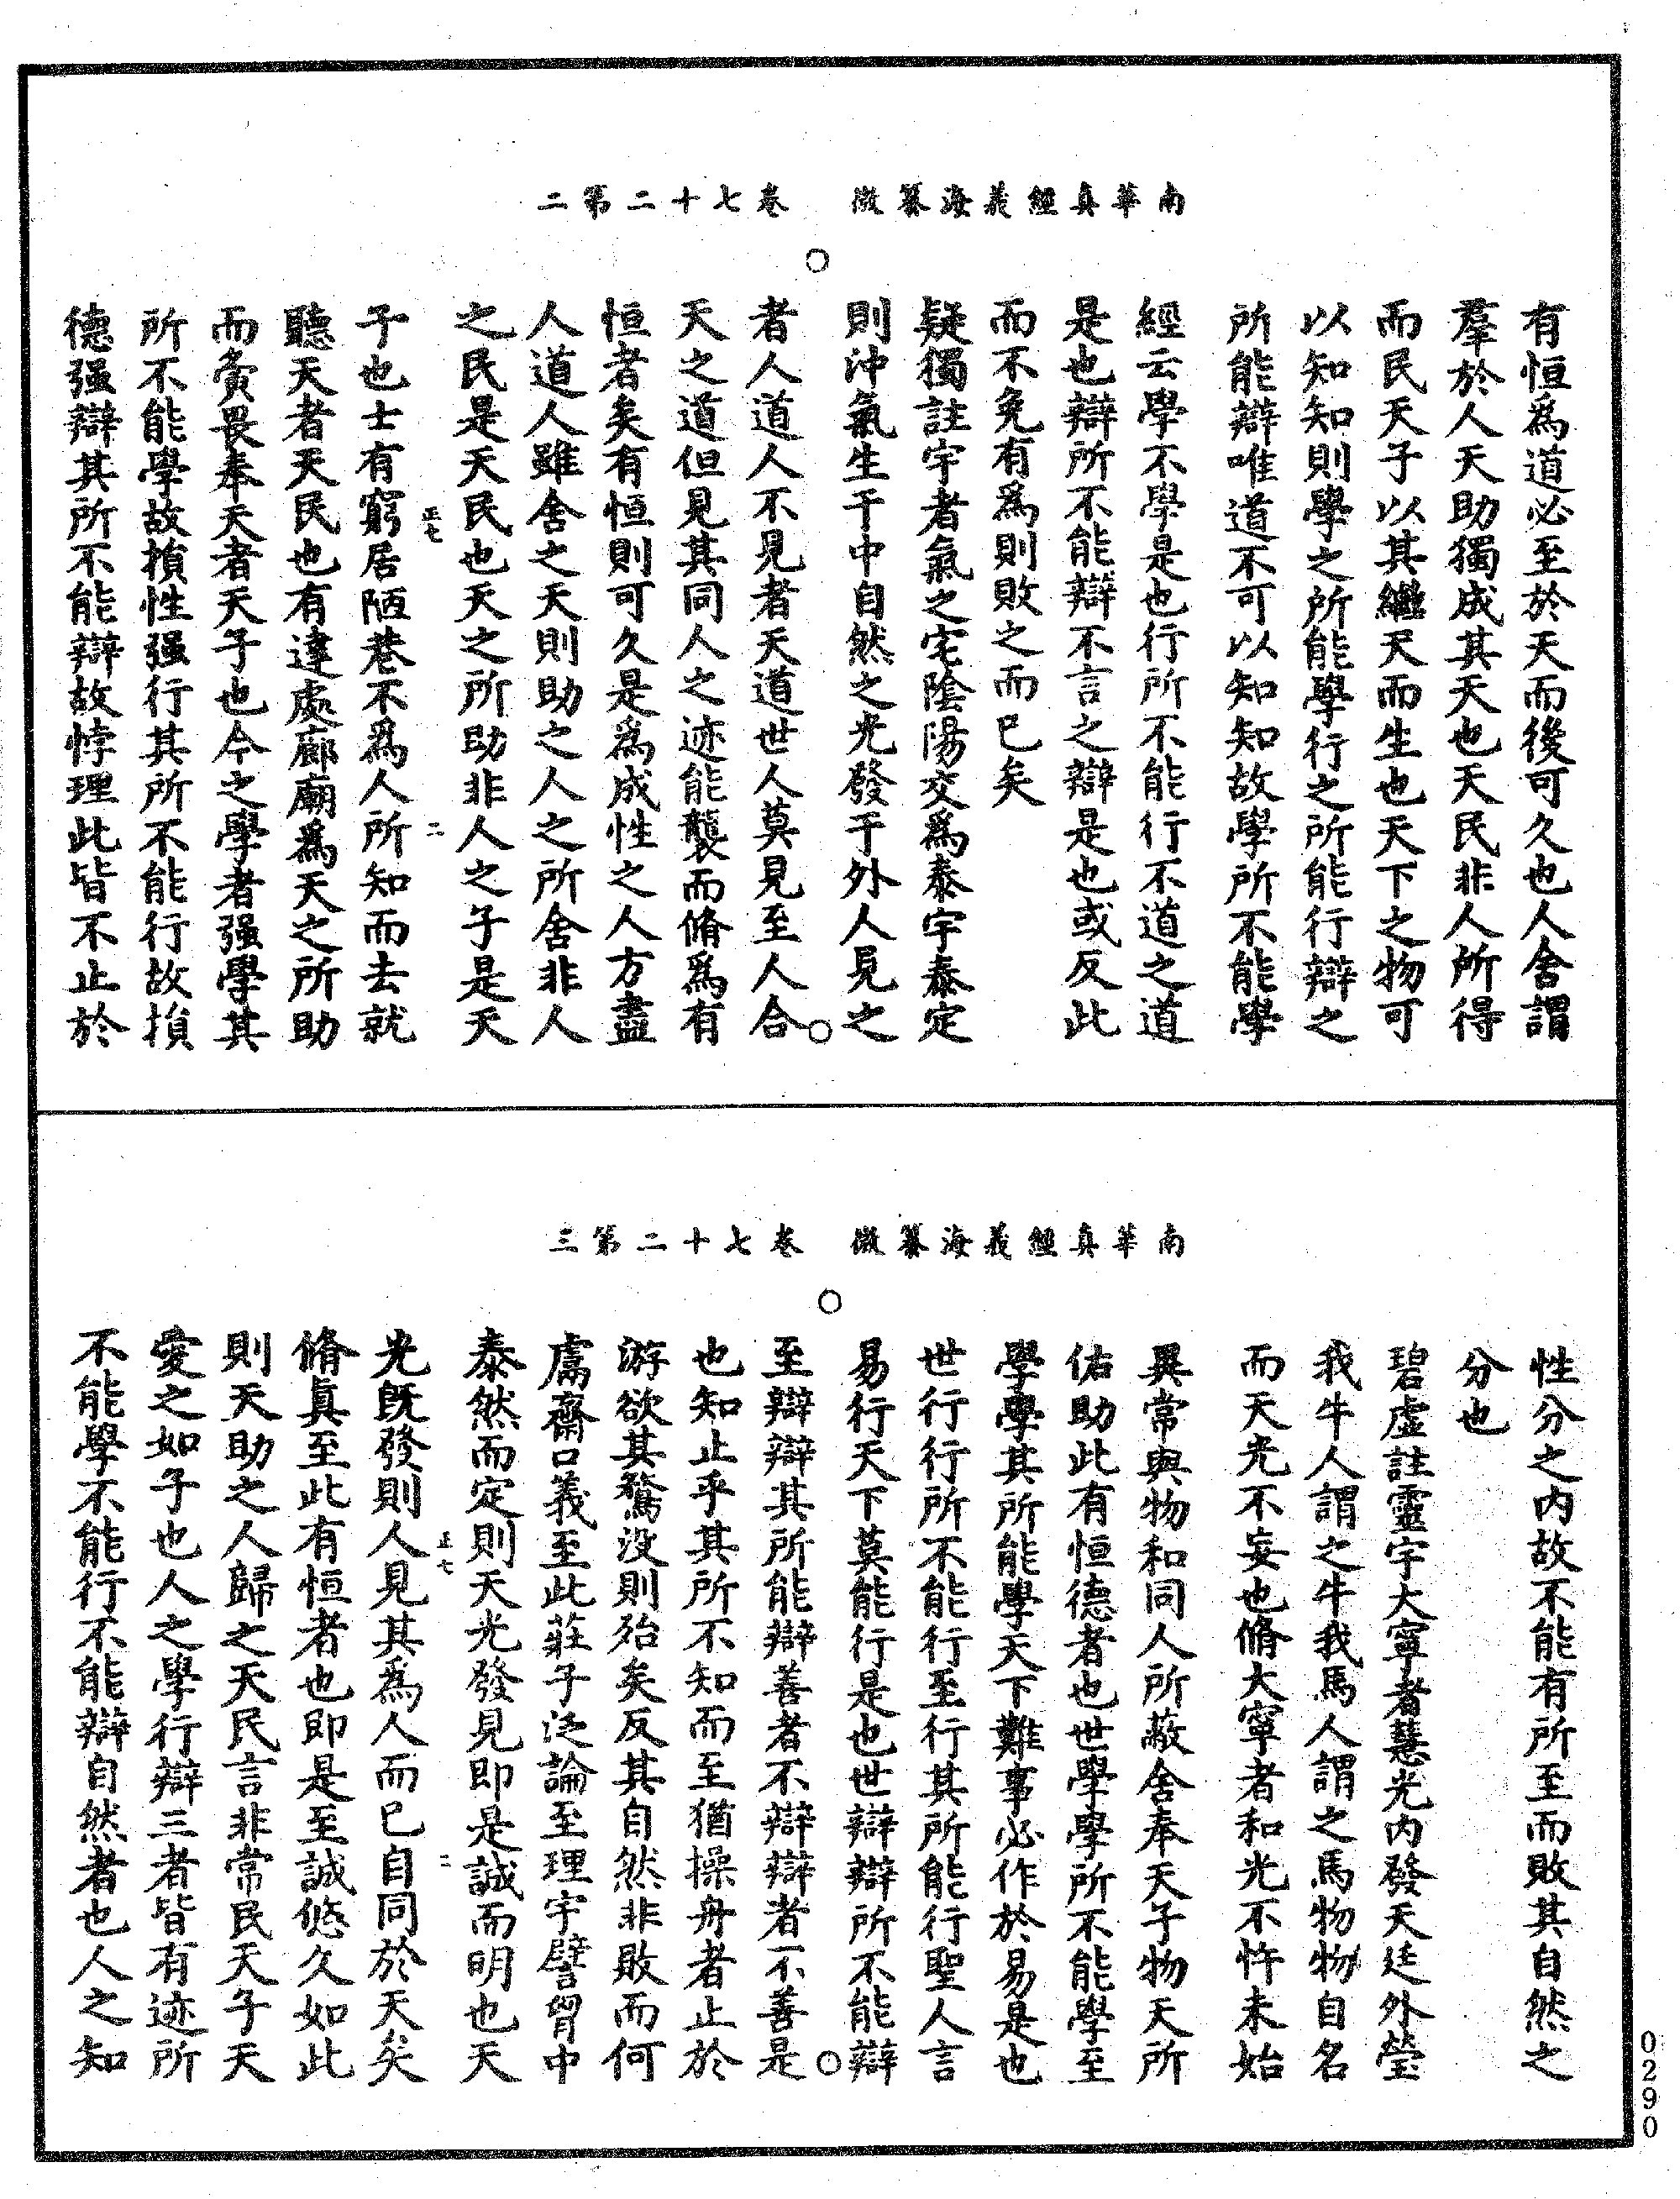 南華真經義海纂微　卷七十二第二
有恒爲道必至於天而後可久也人舍謂
羣於人天助獨成其天也天民非人所得
而民天子以其繼天而生也天下之物可
以知知則學之所能學行之所能行辯之
所能辯唯道不可以知知故學所不能學
經云學不學是也行所不能行不道之道
是也辯所不能辯不言之辯是也或反此
而不免有爲則敗之而已矣
疑獨註宇者氣之宅陰陽交爲泰宇泰定
則沖氣生于中自然之光發于外人見之
者人道人不見者天道世人莫見至人合
天之道但見其同人之迹能襲而脩爲有
恒者矣有恒則可久是爲成性之人方盡
人道人雖舍之天則助之人之所舍非人
之民是天民也天之所助非人之子是天
子也士有窮居陋巷不爲人所知而去就
聽天者天民也有達處廊廟爲天之所助
而賔畏奉天者天子也今之學者强學其
所不能學故損性强行其所不能行故損
德强辯其所不能辯故悖理此皆不止於
正七
二
南華真經義海纂微　卷七十二第三
性分之内故不能有所至而敗其自然之
分也
碧虛註靈宇大寧者慧光内發天廷外瑩
我牛人謂之牛我馬人謂之馬物物自名
而天光不妄也脩大寧者和光不忤未始
異常與物和同人所蔽舍奉天子物天所
佑助此有恒德者也世學學所不能學至
學學其所能學天下難事必作於易是也
世行行所不能行至行其所能行聖人言
易行天下莫能行是也世辯辯所不能辯
至辯辯其所能辯善者不辯辯者不善是
也知止乎其所不知而至猶操舟者止於
游欲其騖没則殆矣反其自然非敗而何
鬳齋口義至此莊子泛論至理宇譬胷中
泰然而定則天光發見即是誠而明也天
光旣發則人見其爲人而已自同於天矣
脩眞至此有恒者也即是至誠悠久如此
則天助之人歸之天民言非常民天子天
愛之如子也人之學行辯三者皆有迹所
不能學不能行不能辯自然者也人之知
正七
二
0290